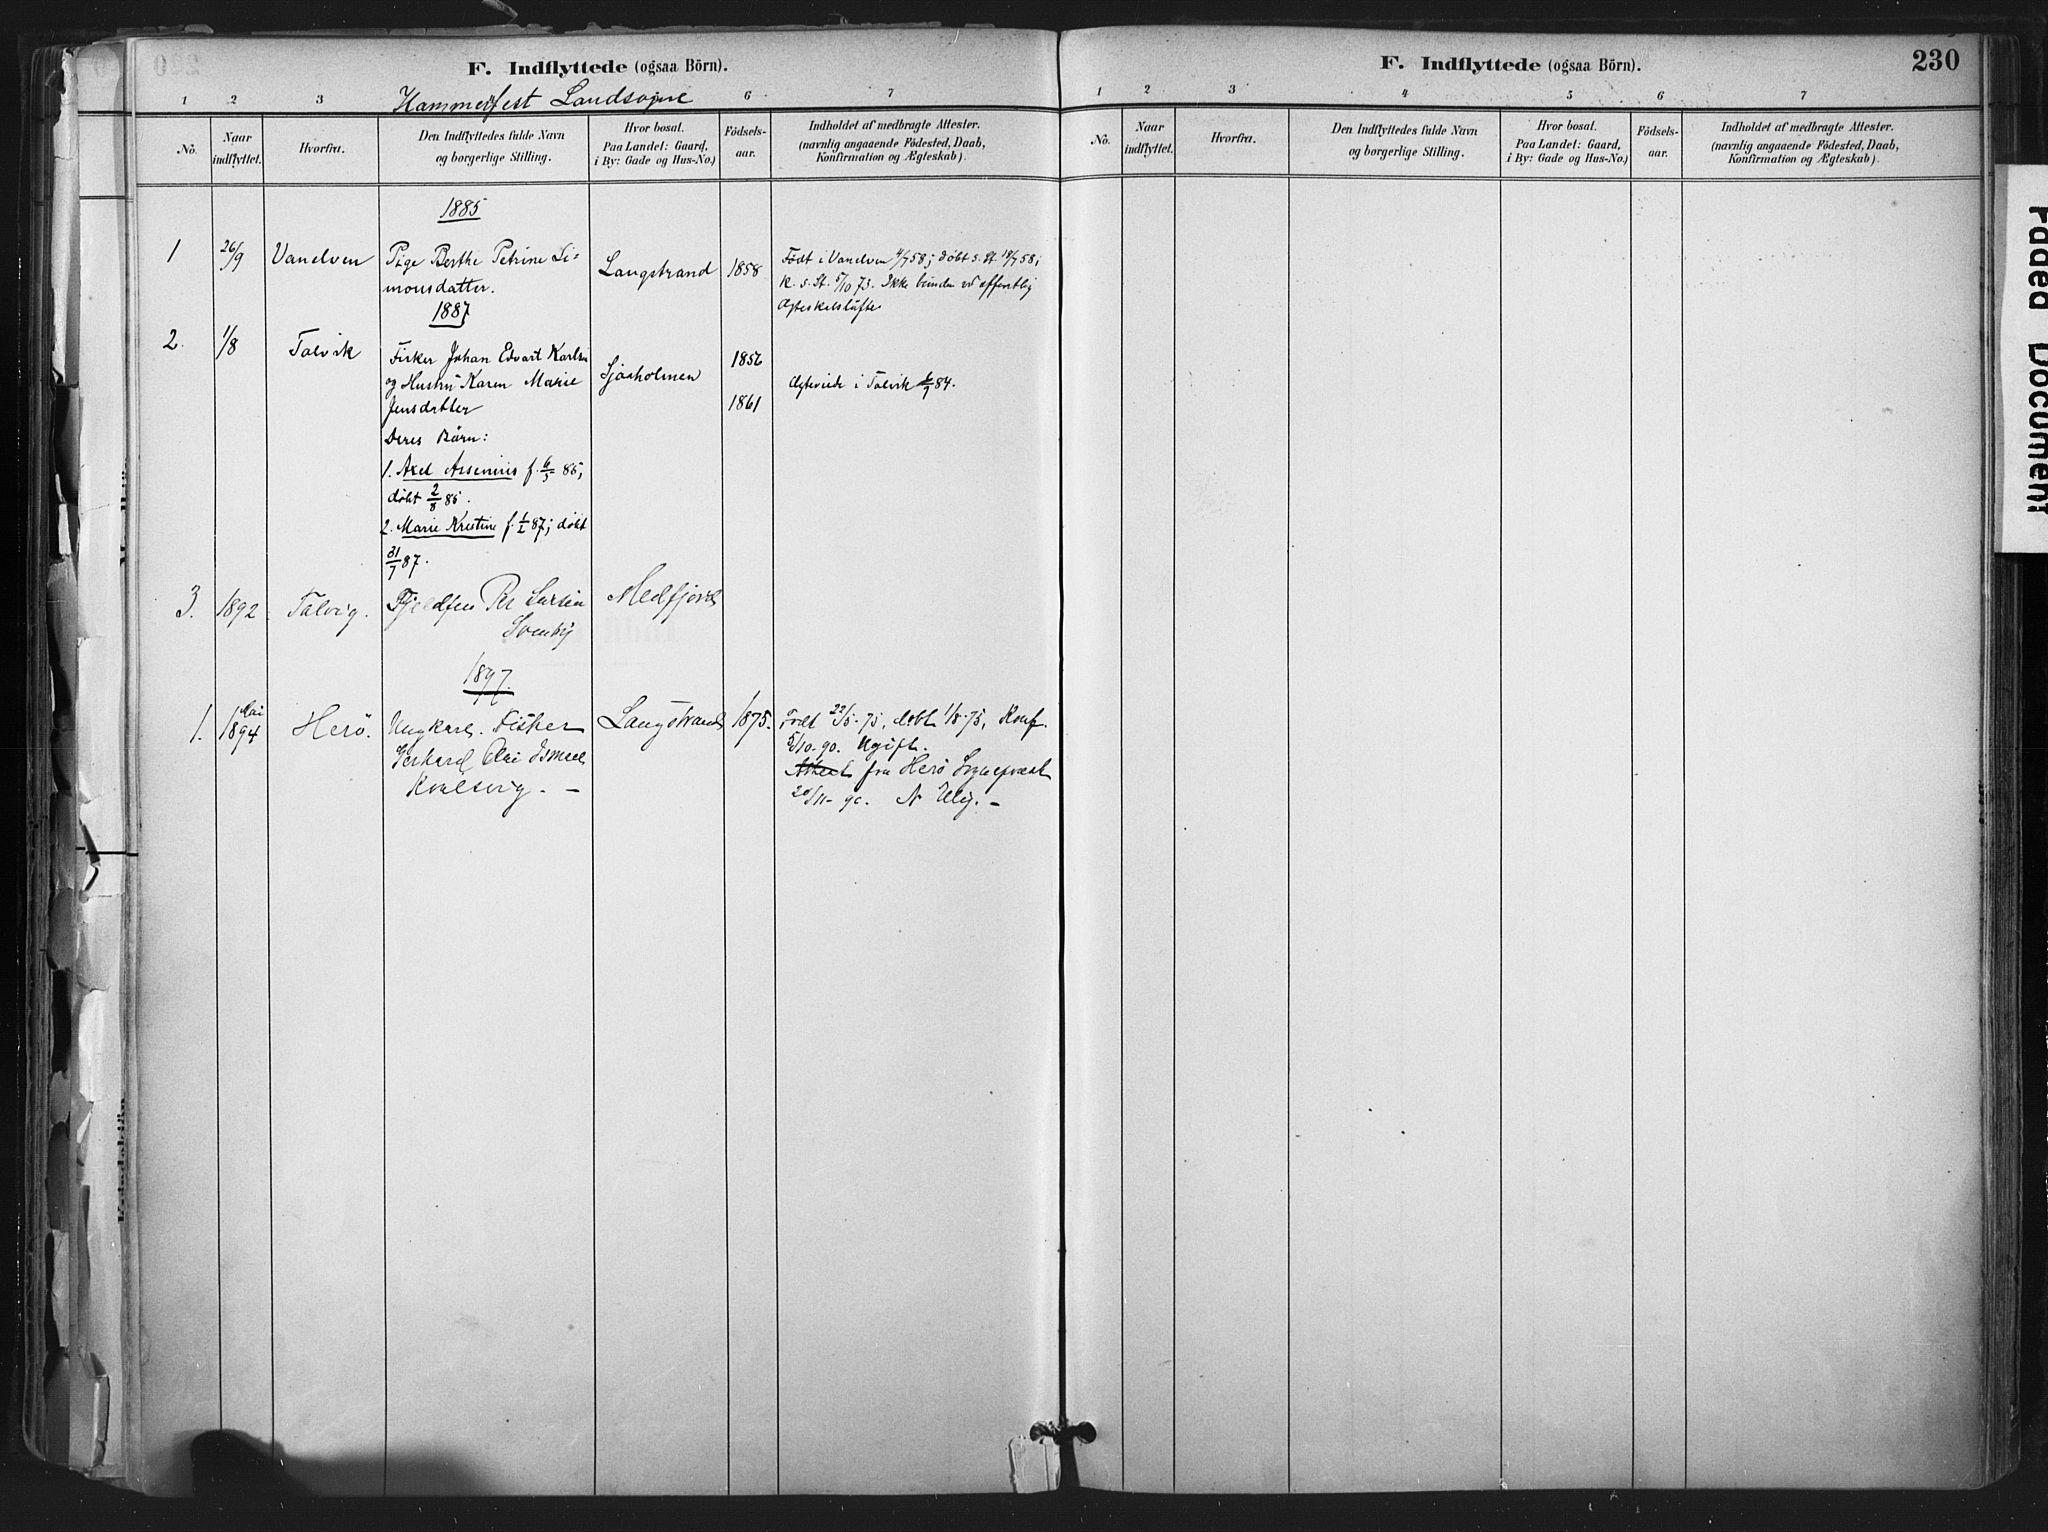 F. Indflyttede (ogsaa Börn).
Hammerfest Landsogne
1 2 3 6 7
No.
Naar indflyttet.
Hvorfra.
Den Indflyttedes fulde Navn
og borgerlige Stilling.
Hvor bosat.
Paa Landet: Gaard,
i By: Gade og Hus-No.)
Födsels-
aar.
Indholdet af medbragte Attester.
(navnlig angaaende Födested, Daab,
Konfirmation og Ægteskab).
1885
1 26/9 Vanelven Pige Berthe Petrine Si= Langstrand 1858 Født i Vanelven 4/7 58; døbt s. St. 18/7 58;
monsdatter. K. s. St. 5/10 73. Ikke bunden v. offentlig
Ægteskabsløfte
1887
2. 1/8 Talvik Fisker Johan Edvart Karlsen 1856
og Hustru Karen Marie Sjåholmen Ægteviede i Talvik 84.
Jensdatter 1861
Deres Børn:
1. Axel Arsenius f. 85;
døbt 2/8 85.
2. Marie Kristine f. 87; døbt
31/7 87.
3. 1892 Talvig. Fjeldfin Per Larsen Medfjord
Somby
1897.
1. Mai 1894 Herö. Ungkarl. Fisker Langstrand 1875. Født 22/5-75, døbt 1/8-75, Konf.
Gerhard Olai Ismael 5/10-90. Ugift.
Kvalsvig. — Attest fra Herö Sognepræst
20/11-90. N Ulig. —
F. Indflyttede (ogsaa Börn).
230
1 2 3 4 5 6 7
No.
Naar indflyttet.
Hvorfra.
Den Indflyttedes fulde Navn
og borgerlige Stilling.
Hvor bosat.
Paa Landet: Gaard,
i By: Gade og Hus-No.)
Födsels-
aar.
Indholdet af medbragte Attester.
(navnlig angaaende Födested, Daab,
Konfirmation og Ægteskab).
Paged Document